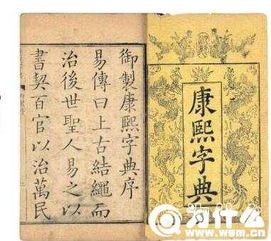 御製康熙字典序
易傳曰上古結繩而
治後世聖人易之以
書契百官以治萬民
康熙字典
为什么
www.wsm.cn